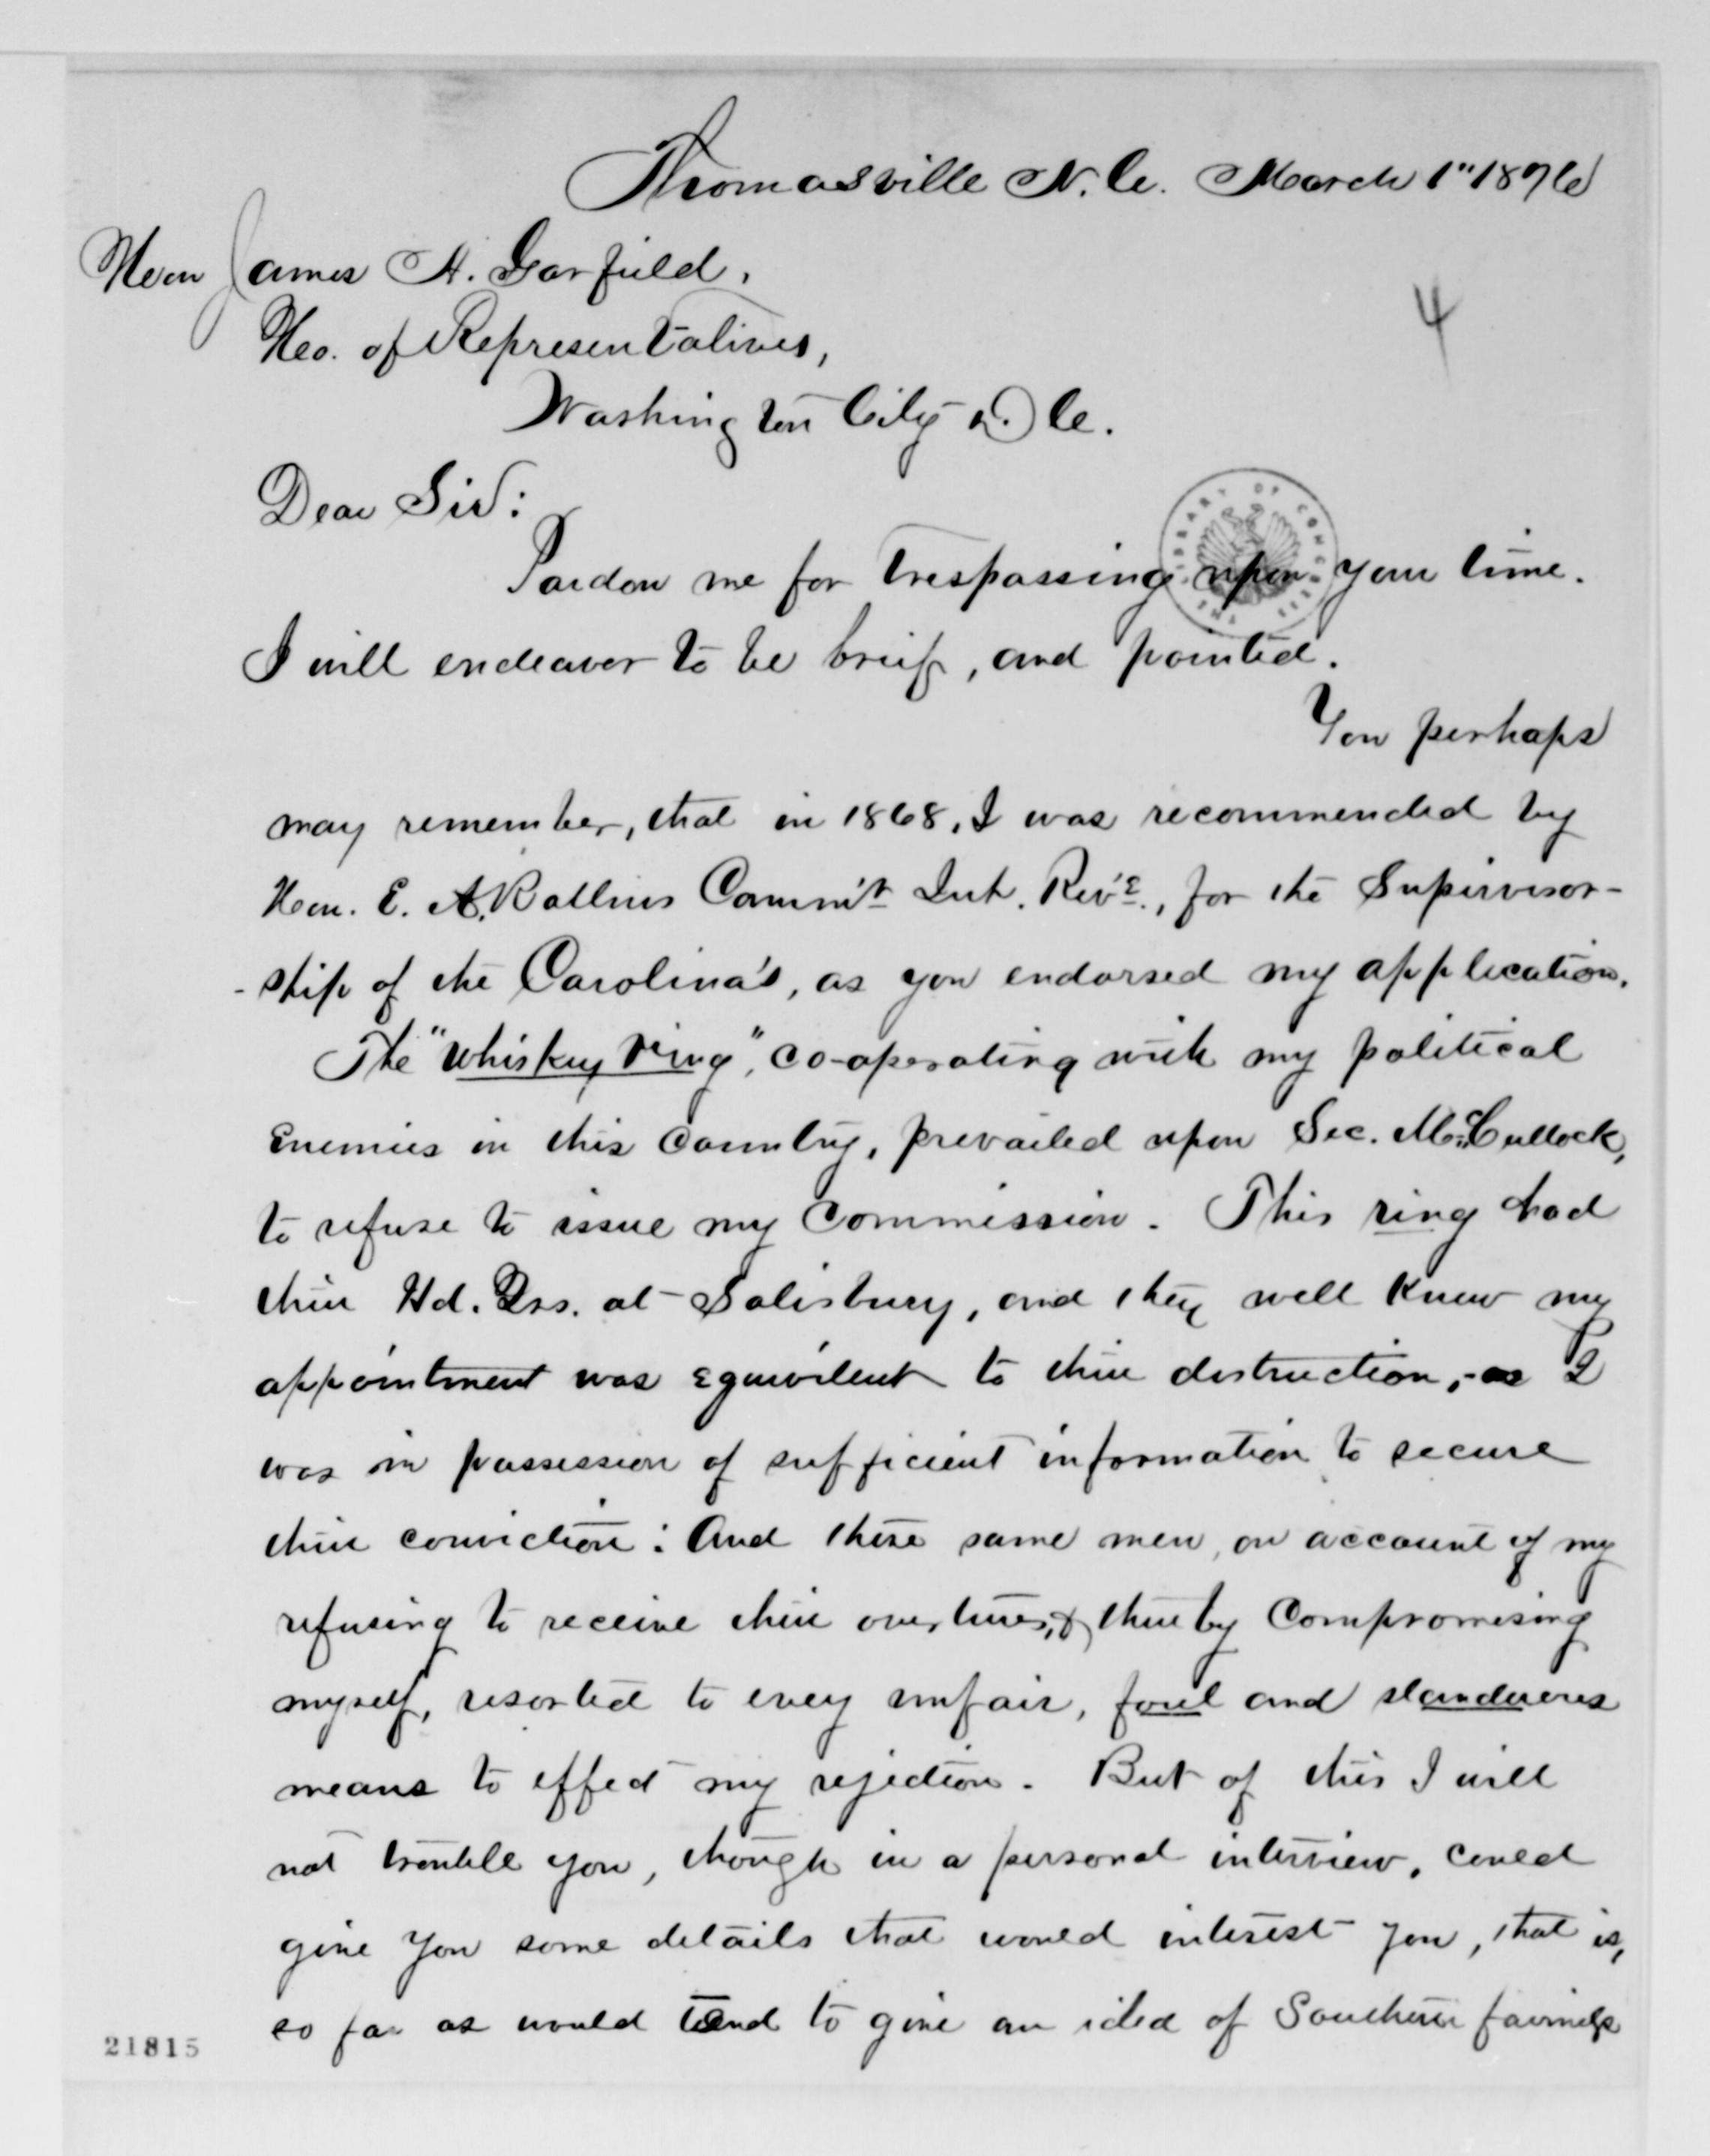 Thomasville N.C. March 1" 1876
Hon James A. Garfield,
4
Ho. of Representatives,
Washington City D.C.
Dear Sir:
LIBRARY OF CONGRESS THE
Pardon me for trespassing upon your time.
I will endeavor to be brief, and pointed.
You perhaps
may remember, that in 1868, I was recommended by
Hon. E. A. Rollins Comm'r Int. Rev'e., for the Supervisor-
-ship of the Carolina's, as you endorsed my application.
The "whiskey ring", co-operating with my political
Enemies in this Country, prevailed upon Sec. McCullock,
to refuse to issue my Commission. This ring had
their Hd. Qrs. at Salisbury, and they well knew my
appointment was equivilent to their distruction,- as I
was in possession of sufficient information to secure
their conviction: And these same men, on account of my
refusing to receive their overtures, & thereby Compromising
myself, resorted to every unfair, foul and slanderous
means to effect my rejection. But of this I will
not trouble you, though in a personal interview, could
give you some details that would interest you, that is,
so far as would tend to give an idea of Southern
21815